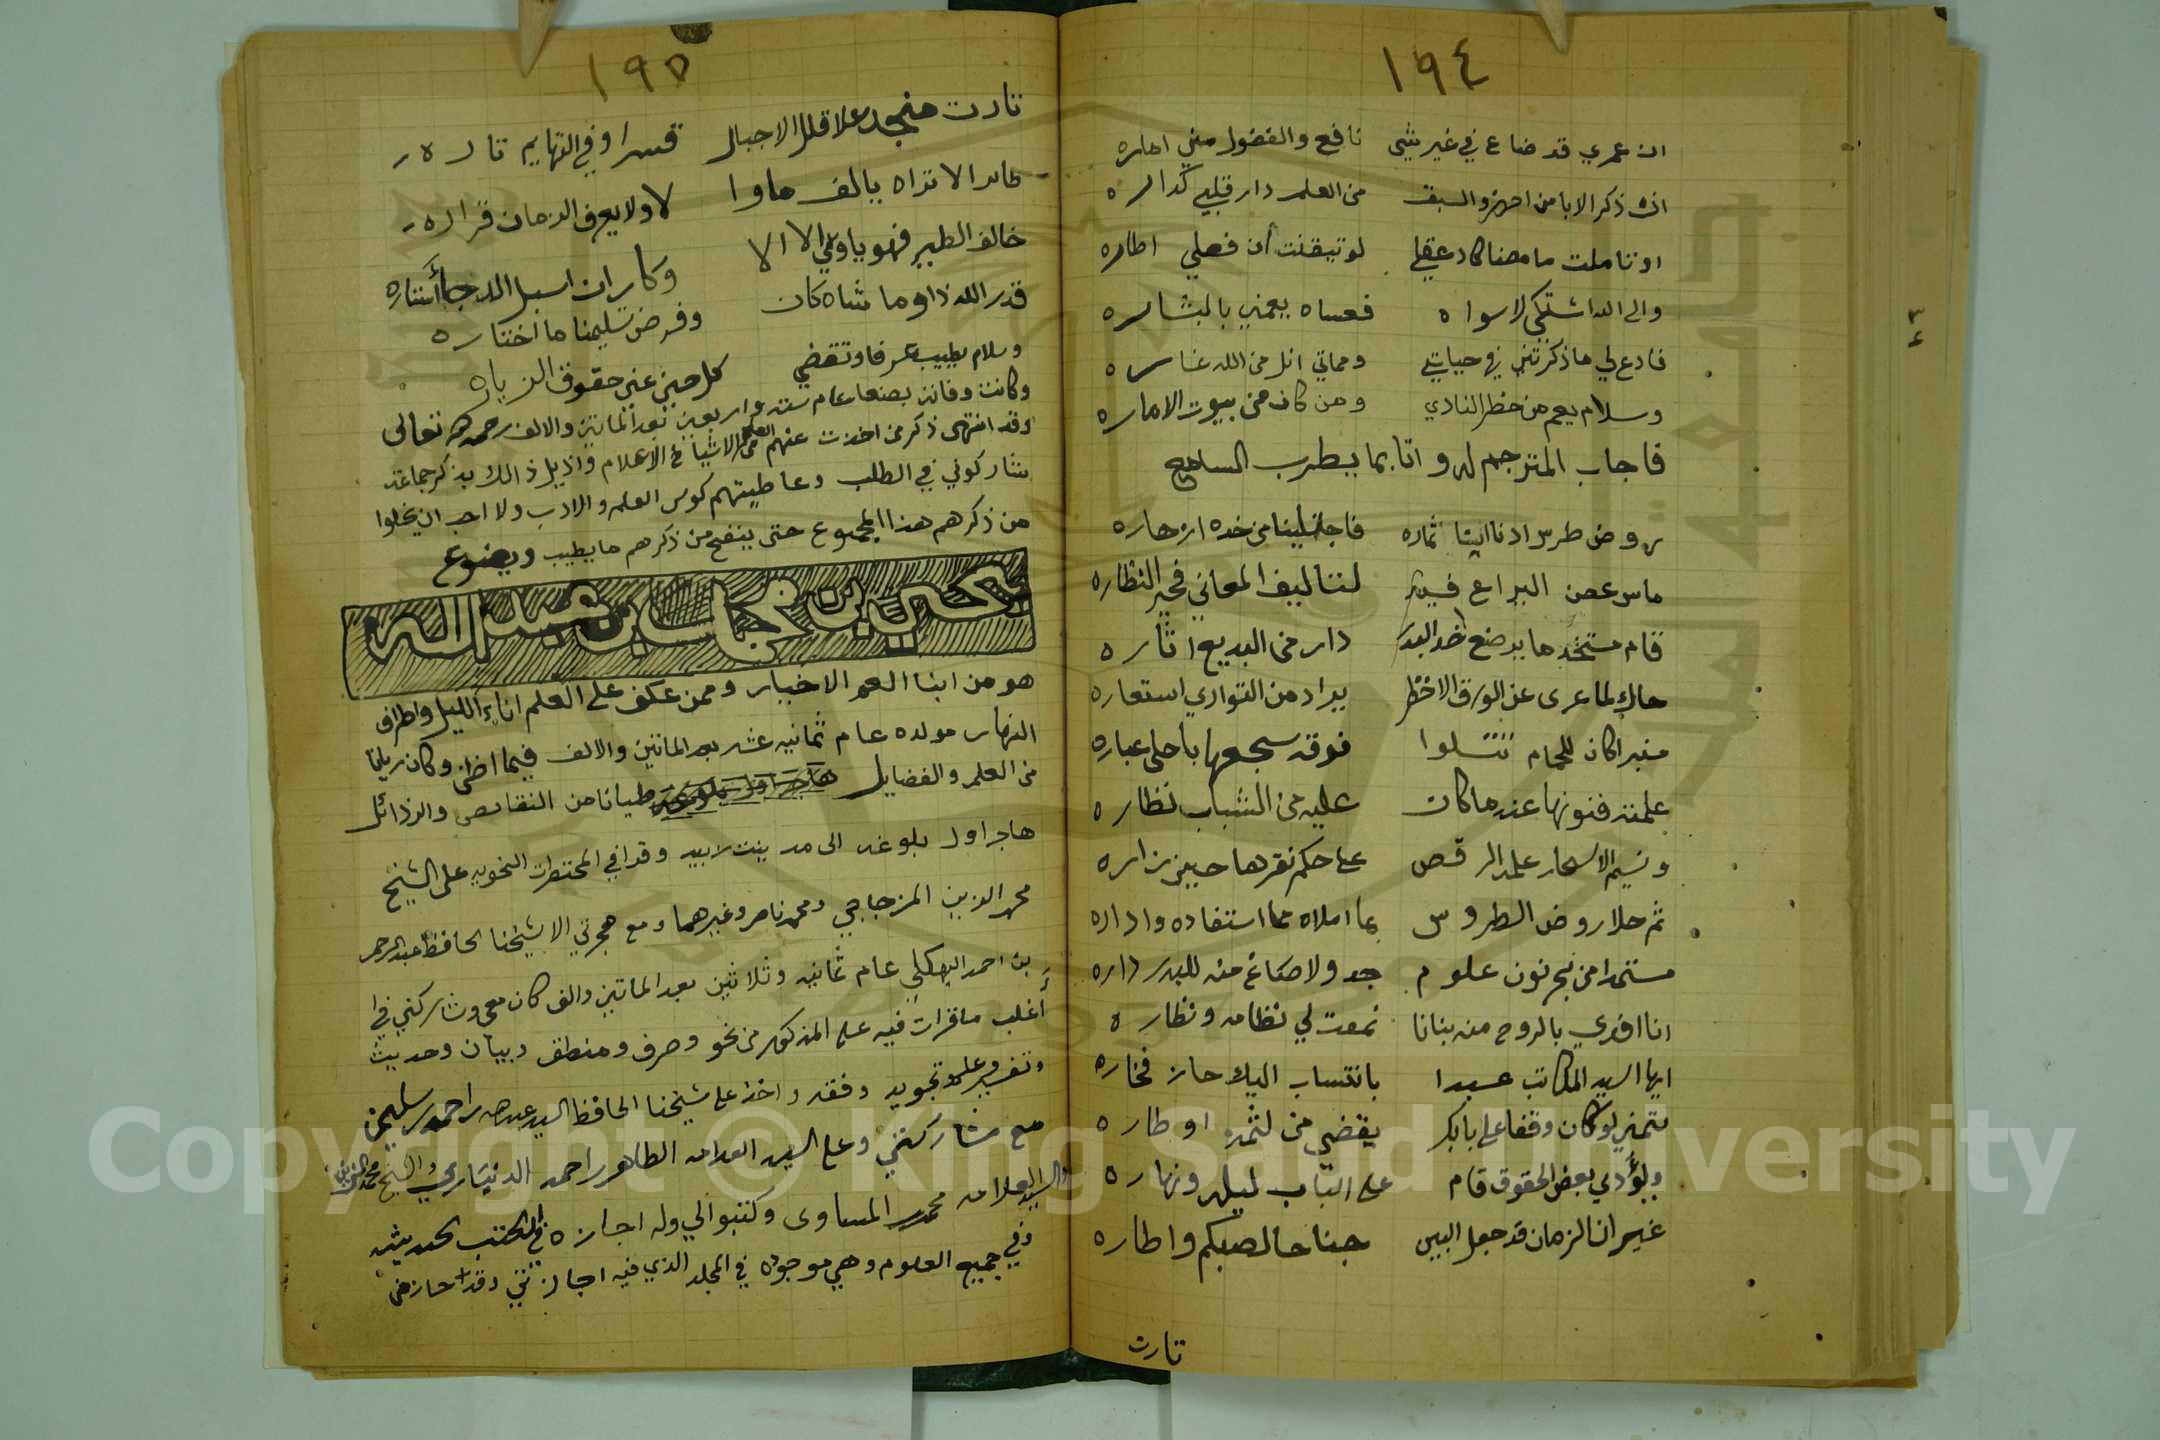 ١٩٤
ان عمري قد ضاع في غير شي نافع والفضول مني اماره
ان ذكر الابا من احرزو السبق من العلم دار قلبي كداره
او تاملت ما مضا كاد عقلي لو تيقنت أن فعلي اطاره
والى الله اشتكي لا سواه فعساه يعمني بالبشاره
فادع لي ما ذكرتني في حياتي ومماتي انل من الله غاره
وسلام يعم من حظر النادي ومن كان من بيوت الاماره
فاجاب المترجم له واتا بما يطرب السامع
روض طرس ادنا الينا ثماره فاجتلينا من خده ازهاره
ماس غصن اليراع فيه لتاليف المعاني فحير النظاره
قام مستخدما يرصع خد دار من البديع اثاره
حاك لما عرى عن الورق الاخظر براد من التواري استعاره
منبرا كان للحمام تتلوا فوقه سجعها باحلى عباره
علمته فنونها عندما كان عليه من الشباب نظاره
ونسيم الاسحار علمه الرقص على حكم نقرها حين زاره
ثم حلا روض الطروس بما املاه مما استفاده واداره
مستمدا من بحر نون علوم جد ولا صاغ منه للبدر داره
انا افدي بالروح منه بنانا نمقت لي نظامه ونظاره
ايها السيد المكاتب عبدا بانتساب اليك حاز فخاره
يتمنى لو كان وقفا على بابك يقضي من لثمه اوطاره
ويؤدي بعض الحقوق قام على الباب ليله ونهاره
غير ان الزمان قد جعل البين جناحا لصبكم واطاره
تارت
١٩٥
تارت منجد علا قلل الاجبال قسرا وفي التهايم تاره
طائر الا تراه يالف ماوا لا ولا يعرف الزمان قراره
خالف الطير فهو ياوي الا الا وكار ان اسبل الدجا أستاره
قدر الله ذا وما شاه كان وفرض تسليمنا ما اختاره
وسلام يطيب عرفا وتقضي كل حين عني حقوق الزياره
وكانت وفاته بصنعا عام ستة واربعين بعد المائتين والالف رحمه الله تعالى
وقد انتهى ذكر من اخذت عنهم العلم من الاشياخ الاعلام واذيل ذالك بذكر جماعة
شاركوني في الطلب وعاطيتهم كوس العلم والادب ولا احب ان يخلوا
من ذكرهم هذا المجموع حتى ينفح من ذكرهم ما يطيب ويضوع
بن عبد الله
هو من ابنا العم الاخيار وممن عكف على العلم اناء الليل واطراف
النهار مولده عام ثمانيه عشر بعد المائتين والالف فيما اظن وكان ريانا
من العلم والفضايل طيانا من النقائص والرذائل
هاجر اول بلوغه الى مدينت زبيد وقرا في المختصرات النحويه على الشيخ
محمد الزين المزجاجي ومحمد ناصر وغيرهما ومع هجرتي الا شيخنا الحافظ عبد الرحمن
بن احمد البهكلي عام ثمانيه وثلاثين بعد المائتين والف كان معي وشاركني في
أغلب ما قرات فيه على المذكور من نحو وصرف ومنطق وبيان وحديث
وتفسير وتجويد وفقه واخذ على شيخنا الحافظ السيد عبد الله
مع مشاركتي وعلى السيد العلامه الطاهر احمد الشيخ محمد المزين
والسيد العلامه محمد المساوى وكتبوا لي وله اجازه في الكتب الحديثيه
وفي جميع العلوم وهي موجوده في المجلد الذي فيه اجازتي وقد حاز من
Copyright © King Saud University